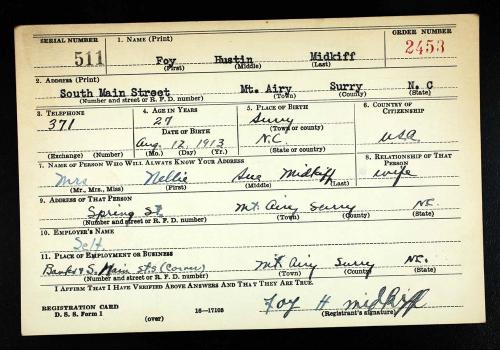 SERIAL NUMBER 1. NAME (Print) ORDER NUMBER
511 Foy Hustin Midkiff 2453
(First) (Middle) (Last)
2. ADDRESS (Print)
South Main Street Mt. Airy Surry N. C
(Number and street or R. F. D. number) (Town) (County) (State)
3. TELEPHONE 4. AGE IN YEARS 5. PLACE OF BIRTH 6. COUNTRY OF CITIZENSHIP
371 27 Surry
DATE OF BIRTH (Town or county)
Aug. 12, 1913 N.C. USA
(Exchange) (Number) (Mo.) (Day) (Yr.) (State or country)
7. NAME OF PERSON WHO WILL ALWAYS KNOW YOUR ADDRESS 8. RELATIONSHIP OF THAT PERSON
Mrs Nellie Sue Midkiff wife
(Mr., Mrs., Miss) (First) (Middle) (Last)
9. ADDRESS OF THAT PERSON
Spring St. Mt. Airy Surry NC.
(Number and street or R. F. D. number) (Town) (County) (State)
10. EMPLOYER'S NAME
Self.
11. PLACE OF EMPLOYMENT OR BUSINESS
Banks & S. Main sts (Corner) Mt. Airy Surry NC.
(Number and street or R. F. D. number) (Town) (County) (State)
I AFFIRM THAT I HAVE VERIFIED ABOVE ANSWERS AND THAT THEY ARE TRUE.
REGISTRATION CARD Foy H Midkiff
D. S. S. Form 1 (over) 16—17105 (Registrant's signature)